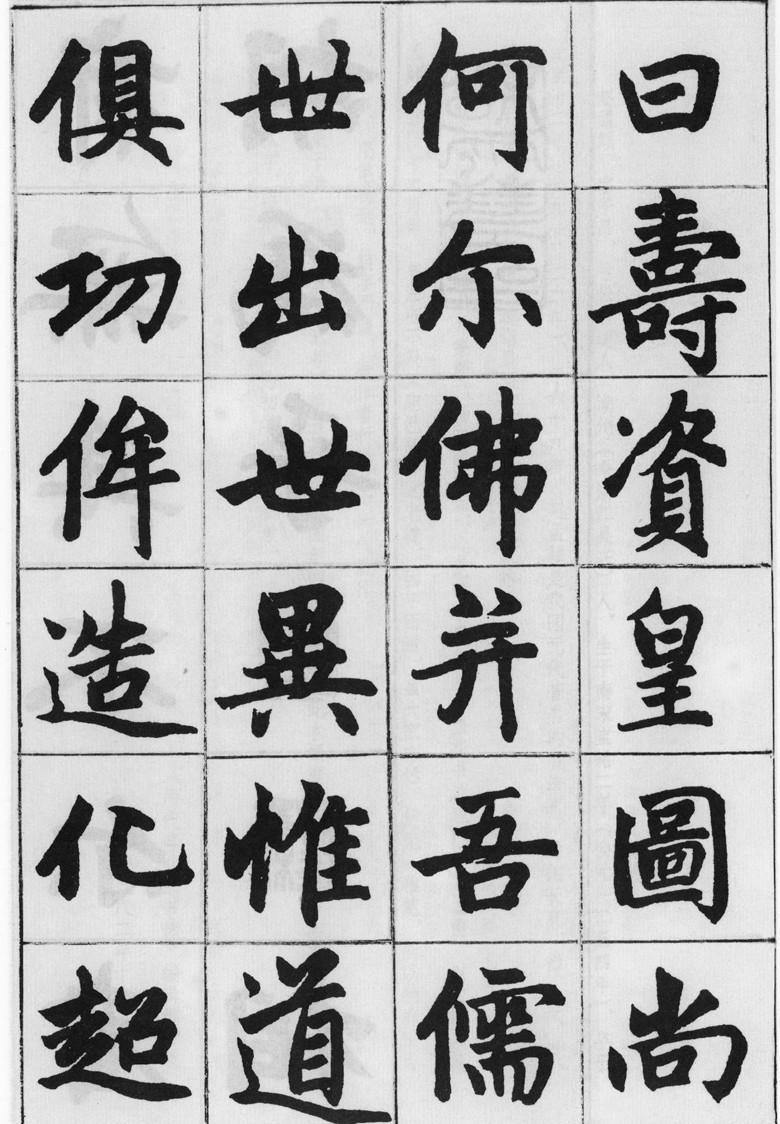 曰壽資皇圖尚
何尔佛并吾儒
世出世異惟道
俱功侔造化超